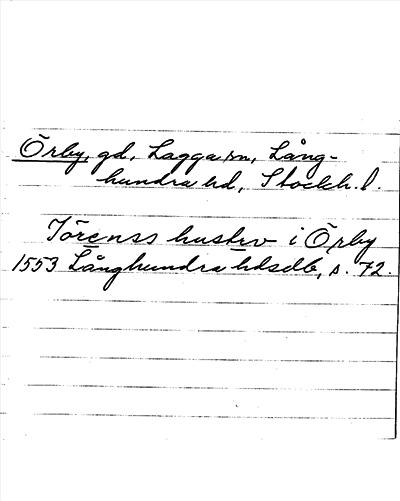 Örby, gd, Lagga sn, Lång-
hundra hd, Stockh. l.
Jörenss hustrv i Örby
1553 Långhundra hdsdb, s. 72.